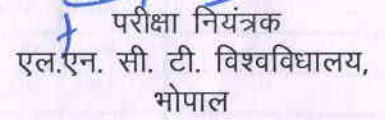 परीक्षा नियंत्रक
एल.एन. सी. टी. विश्वविधालय,
भोपाल